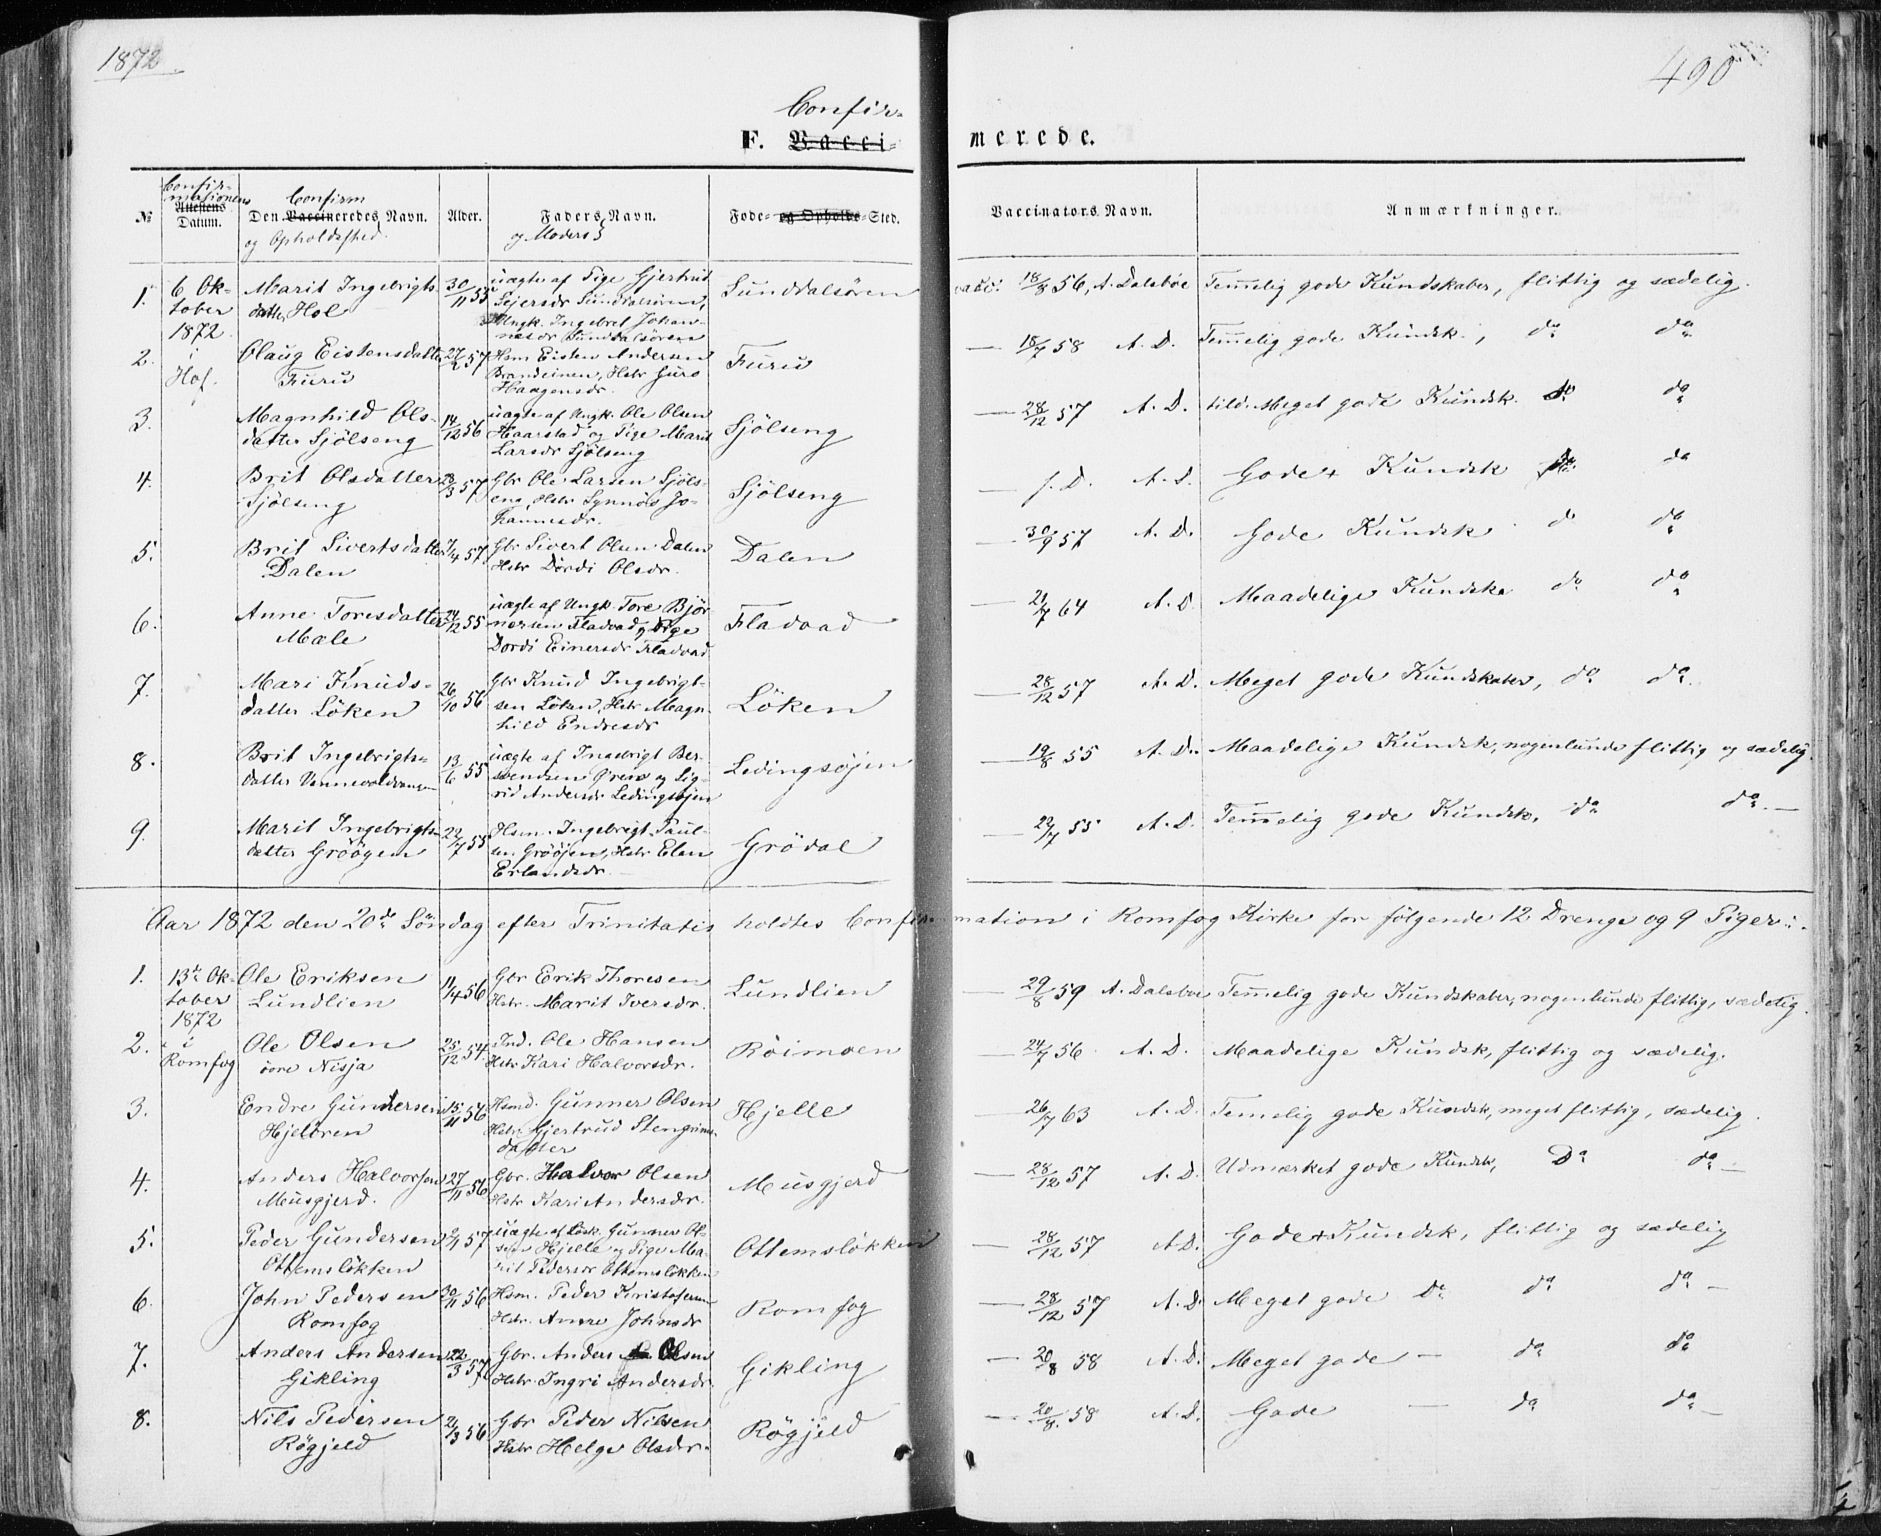 1872
490
Confir-
F. Vacci- merede.
Confir-
mationens
Confirm
№ Attestens Datum. Den Vaccineredes Navn. Alder. Faders Navn. Føde- og Opholds-Sted. Vaccinators Navn. Anmærkninger.
og Opholdssted. og Moders}
1. 6 Ok- Marit Ingebrigts- 30/11 55 uægte af Pige Gjertrud Sunddalsören vacc. 18/8 56, A. Dalsböe Temmelig gode Kundskaber, flittig og sædelig.
tober datter Hol Sejersdr Sunddalsören,
1872 Ungk. Ingebret Johan-
nesdr Sunddalsören
2. i Olaug Eistensdatter 27/2 57 Hsm Eisten Andersen Furu — 18/7 58 A. D. Temmelig gode Kundsk., do do
Hof. Furu Brandeinen, Hstr Guro
Haagensdr.
3. Magnhild Ols- 14/12 56 uægte af Ungk. Ole Olsen Sjölseng — 28/12 57 A. D. tild. Meget gode Kundsk. do do
datter Sjölseng Haarstad og Pige Marit
Larsdr Sjölseng
4. Brit Olsdatter 23/3 57 Gbr Ole Larsen Sjöls- Sjölseng — s. D. A. D. Gode + Kundsk do do
Sjölseng eng, Hstr Synnös Jo-
hannesdr.
5. Brit Sivertsdatter 7/4 57 Gbr Sivert Olsen Dalen Dalen — 30/9 57 A. D. Gode Kundsk do do
Dalen Hstr Dördi Olsdr.
6. Anne Toresdatter 24/12 55 uægte af Ungk. Tore Björ- Fladvad — 21/7 64 A. D Maadelige Kundsk. do do
Mæle nersen Fladvad og Pige
Dordi Einersdr Fladvad
7. Mari Knuds- 26/10 56 Gbr Knud Ingebrigt- Löken — 28/12 57 A. D. Meget gode Kundskaber, do do
datter Löken sen Löken, Hstr Magn-
hild Endresdr
8. Brit Ingebrigts- 13/6 55 uægte af Ingebrigt Ber- Ledingsøjen — 19/8 55 A. D. Maadelige Kundsk, nogenlunde flittig og sædelig.
datter Vennevoldvangen svendsen Grero og Sig-
rid Andersdr Ledingsøjen
9. Marit Ingebrigts- 22/7 55 Hsm. Ingebrigt Paul- Grödal — 22/7 55 A. D. Temmelig gode Kundsk. do do —
datter Gröögen sen Grööjen, Hstr Elen
Erlandsdr.
Aar 1872 den 20de Söndag efter Trinitatis holdtes Confirmation i Romfog Kirke for følgende 12 Drenge og 9 Piger:
1. 13de Ok- Ole Eriksen 11/4 56 Gbr Erik Thoresen Lundlien — 29/8 59 A. Dalsboe Temmelig gode Kundskaber, nogenlunde flittig, sædelig.
tober Lundlien Hstr. Marit Iversdr.
1872
2. i Ole Olsen 25/12 54. Ind. Ole Hansen Röimoen — 24/7 56 A. D. Maadelige Kundsk, flittig og sædelig.
Romfog övre Nisja Hstr Kari Halvorsdr.
3. Endre Gundersen 15/11 56 Hsmd. Gunner Olsen Hjelle — 26/7 63 A. D. Temelig gode Kundsk, meget flittig, sædelig.
Hjelören Hstr. Gjertrud Stengrims-
datter
4. Anders Halvorsen 27/11 56 Gbr. Halvor Olsen Musgjerd — 28/12 57 A. D. Udmærket gode Kundsk, Do do —
Musgjerd. Hstr Kari Andersdr.
5. Peder Gundersen 2/1 57 uægte af Gunner Ol- Ottemslökken — 28/12 57 A. D. Gode + Kundsk, flittig og sædelig
Ottemslökken sen Hjelle og Pige Ma-
rit Pedersdr Ottemslökken
6. John Pedersen 30/11 56 Hsm. Peder Kristofersen Romfog — 28/12 57 A. D. Meget gode Do do do —
Romfog Hstr. Anne Johnsdr
7. Anders Andersen 22/3 57 Gbr. Anders Olsen Gikling — 20/8 58 A. D. Meget gode — do do
Gikling Hstr. Ingri Andersdr.
8. Nils Pedersen 21/3 56 Gbr Peder Nilsen Rögjeld — 20/8 58 A. D. Gode — do do —
Rögjeld Hstr Helge Olsdr.